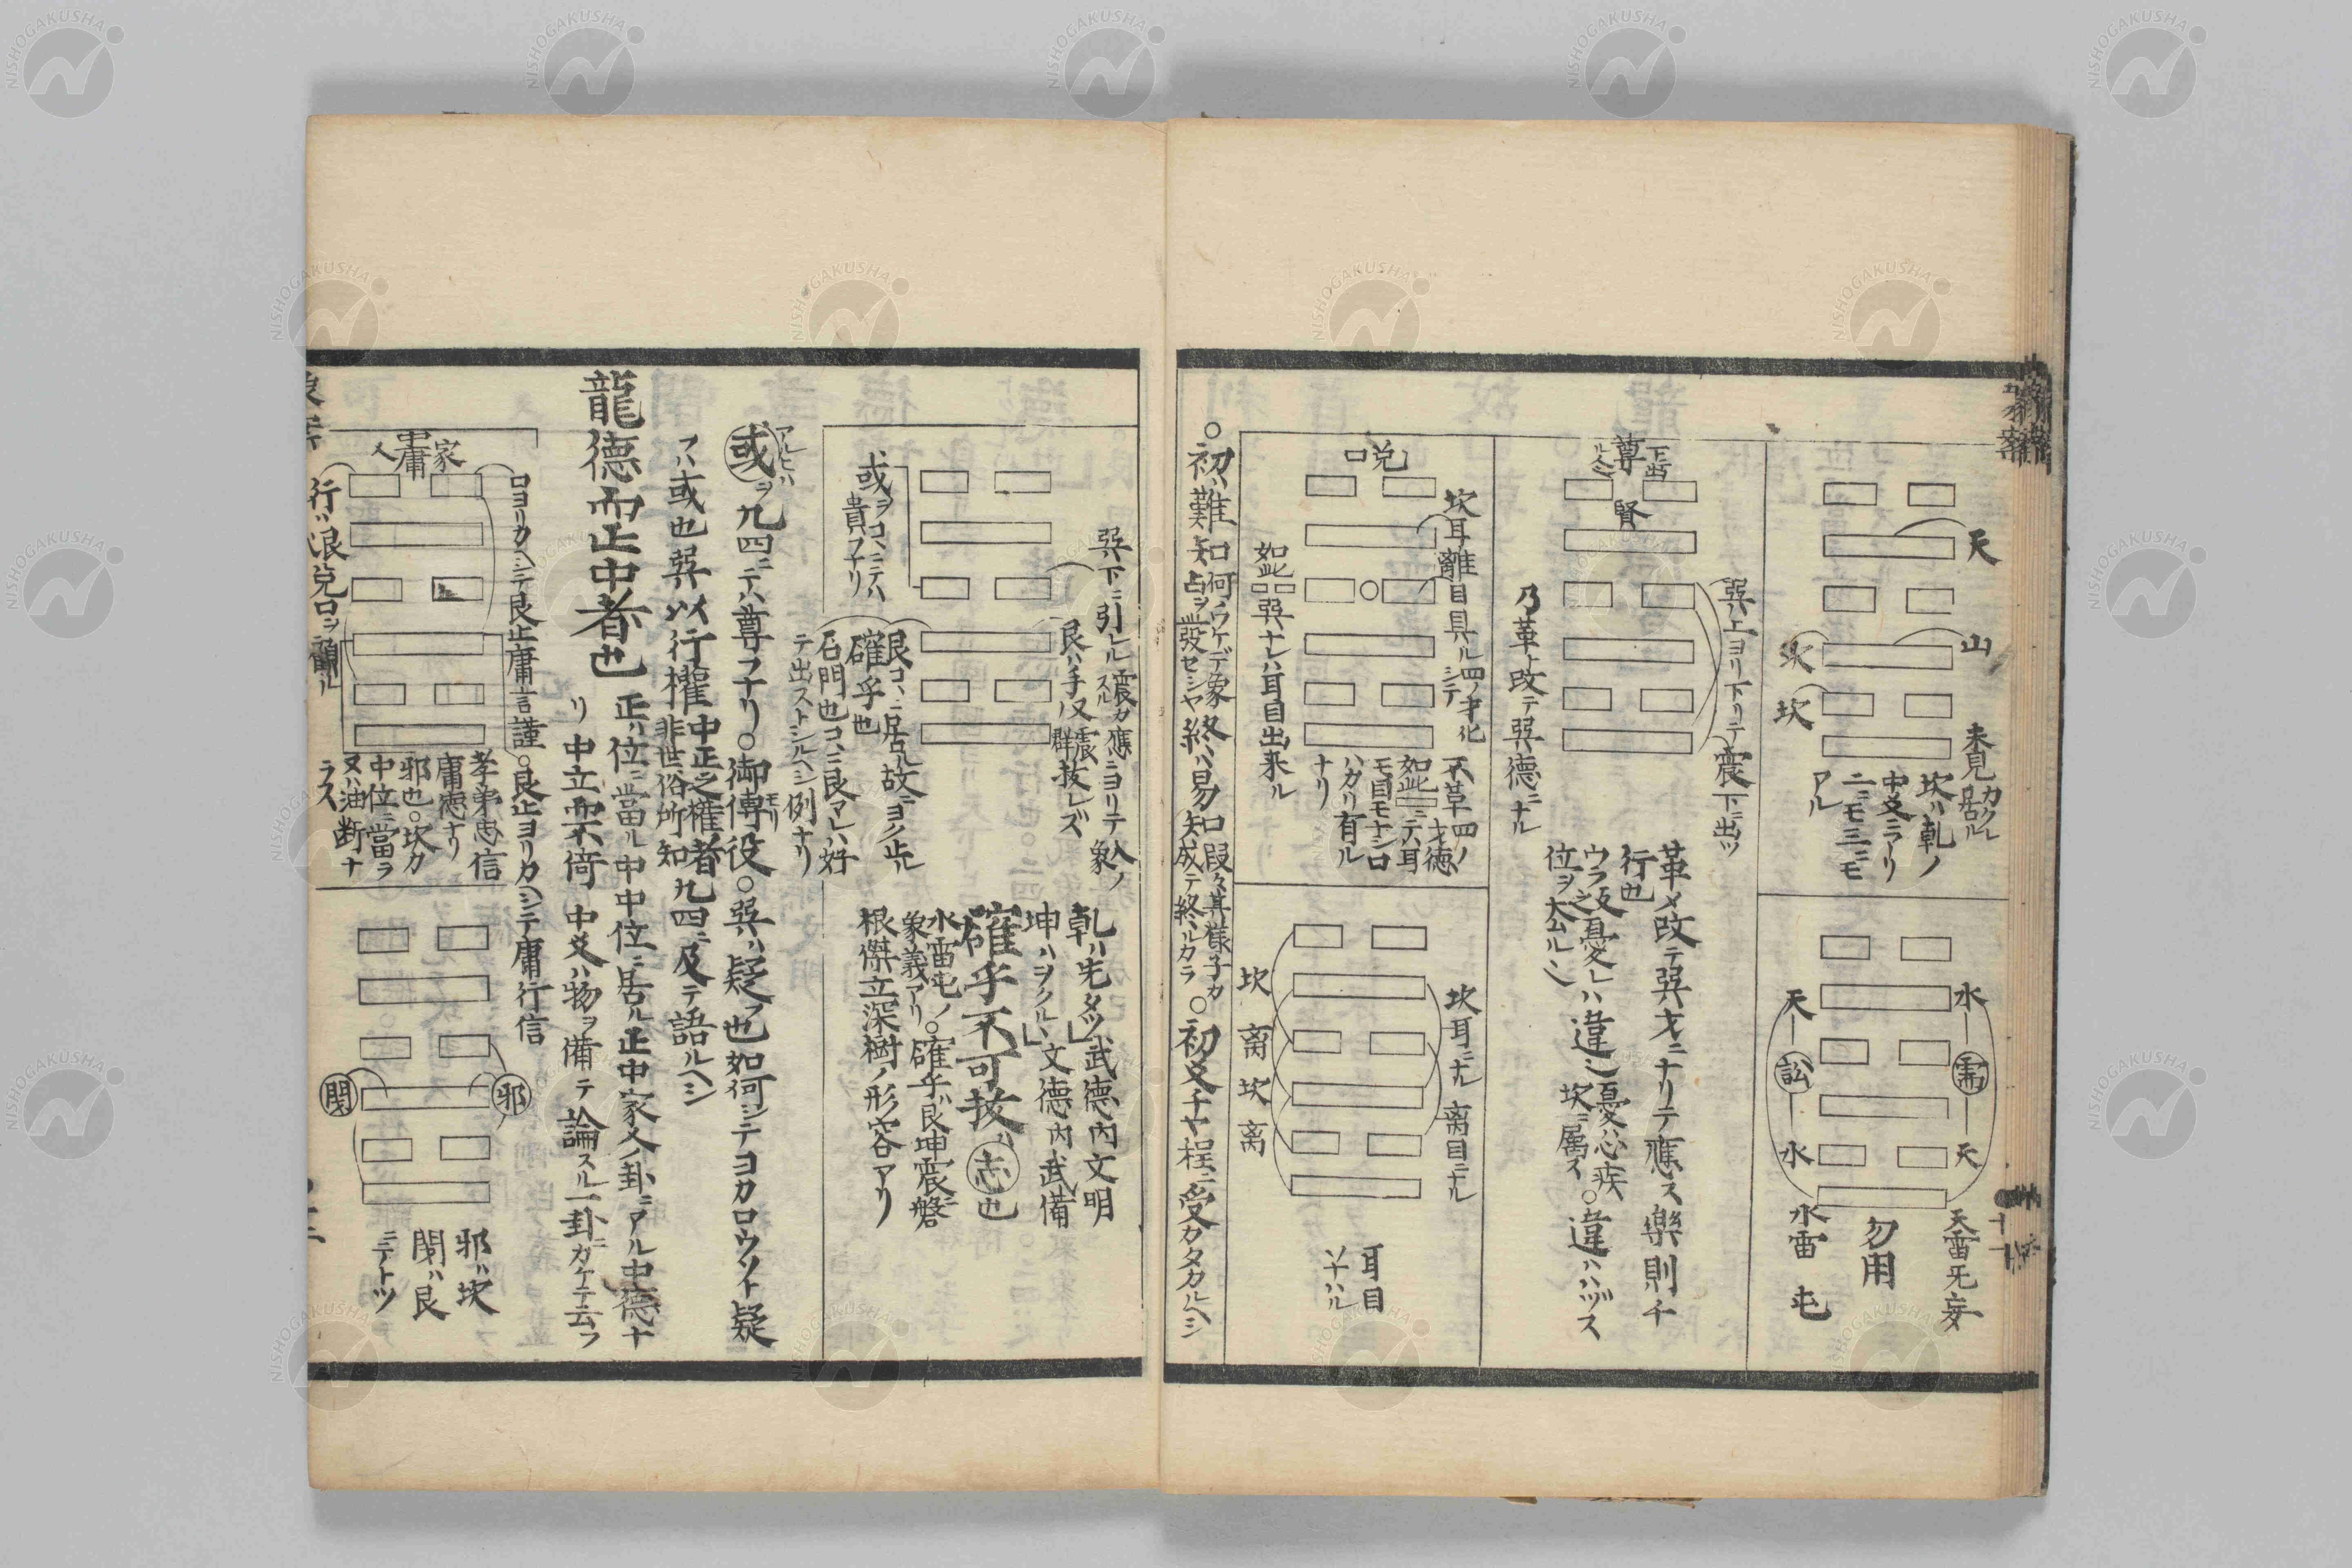 天
山
坎
坎
未見カクレ居ル
坎ハ乾ノ
中爻ニアリ
二ニモ三ニモ
アル
水
需
天
天
訟
水
天雷无妄
勿用
水雷屯
尊
賢
巽上ヨリ下リテ震下ニ出ツ
乃革メ改テ巽德ニナル
革メ改テ巽才ニナリテ應ス樂則チ
行也
憂レハ違之憂心疾
坎ニ属ス
○違ハハヅス
兌口
坎耳離目具ル
四ノ才化シテ
不革四ノ才德
如此ニテハ耳
モ目モナシ口
ハカリ有ル
ナリ
如此巽ナレハ耳目出来ル
坎耳ニナル
离目ニナル
坎
离
坎
离
耳目
ソナハル
○初ハ難知何ノウケデ象占ヲ發セシヤ終ハ易知
成テ終ルカラ
○初爻チヤ程ニ受カタカルヘシ
巽下ニ引レル震カ應ニヨリテ
艮ハ手又震
群拔レズ
或ヲココニテハ
貴フナリ
艮ココニ居ル故ニヨク止
確乎也
石門也ココニ艮アレハ好
テ出ストシルヘシ例ナリ
乾ハ先タツ武德内文明
坤ハヲクルヽ文德内武備
確乎不可拔ハ志也
水雷屯ノ
象義アリ
○確乎ハ艮坤震磐
根傑立深樹ノ形容アリ
アルヒハ
或ヲ九四ニテハ尊フナリ○御傅役○巽ハ疑フ也如何シテヨカロウソト疑
フハ或也巽以行權
中正之權ノ者
非世俗所知
九四ニ及テ語ルヘシ
龍德而正中者也
正ハ位ニ當ル中中位ニ居ル正中家人ノ卦ニアル中德ナ
リ中立而不倚中爻ハ物ヲ備テ論スル一卦ニカケテ云フ
口ヨリカヘシテ艮止庸言謹○艮止ヨリカヘシテ庸行信
家
中庸
人
孝弟忠信
庸德ナリ
邪也○坎カ
中位ニ當ラ
又ハ油断ナ
ラス
邪
閑
邪ハ坎
閑ハ艮
ニテトツ